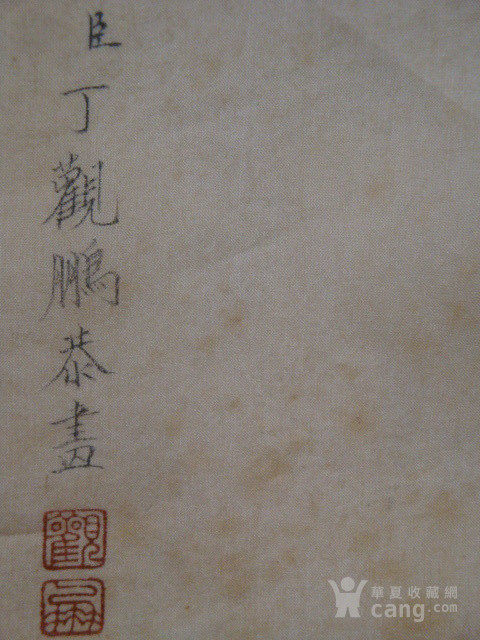 臣丁觀鵬恭畫
觀
鵬
華夏收藏網
cang.com